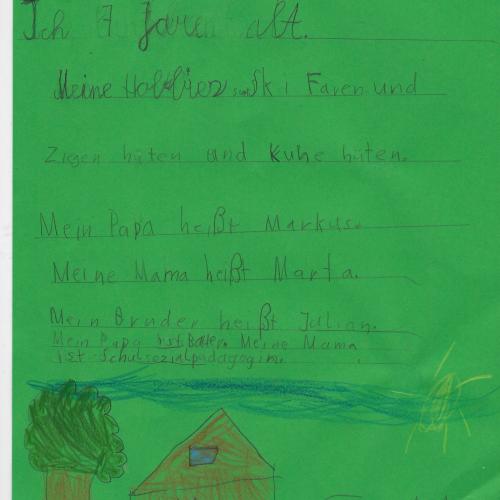 Ich 7 Jaren alt.
Meine Hobbiez sind Ski Faren und
Ziegen hüten und Kuhe hüten.
Mein Papa heißt Markus.
Meine Mama heißt Marta.
Mein Bruder heißt Julian.
Mein Papa ist Bauer. Meine Mama
ist Schulsozialpädagogin.